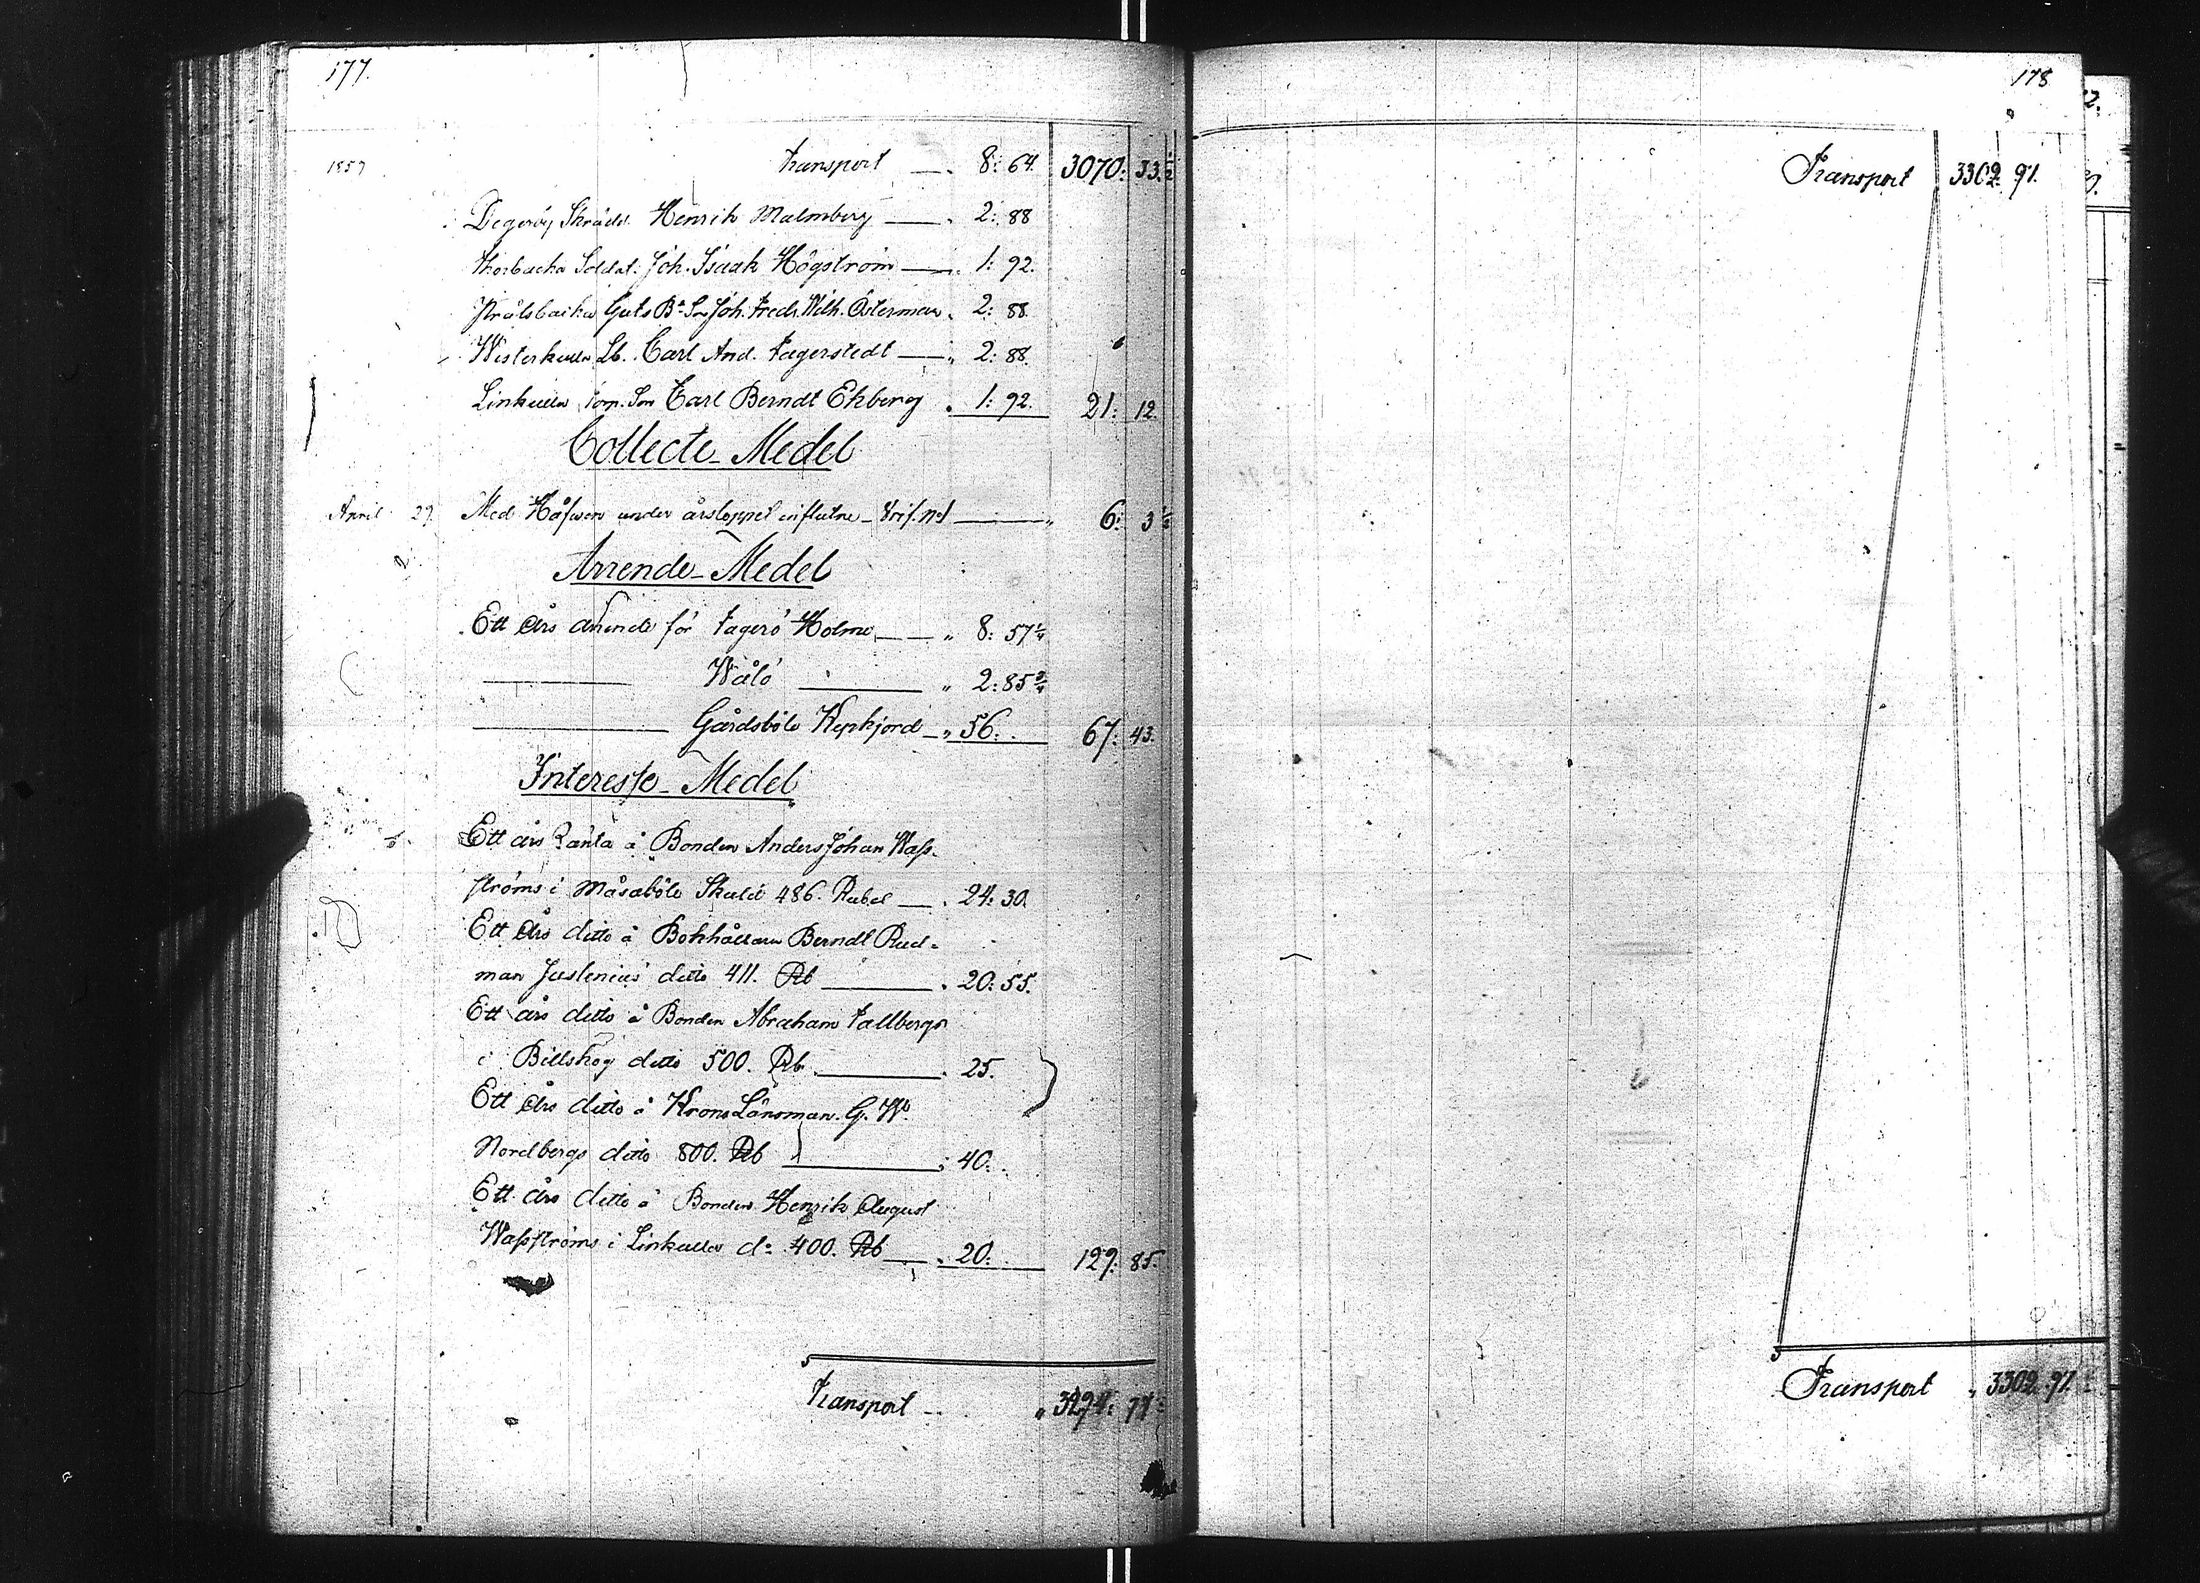 177.
1857 Transport — 8: 64. 3070: 33 1/2
Degerby Skrädd. Henrik Malmberg — 2: 88
Thorbacka Soldat. Joh. Isaak Högström — 1: 92.
Prålsbacka Guts B. Sn Joh. Fredr. Wilh. Österman 2: 88.
Westerkulla Lb. Carl And. Fagerstedt — " 2: 88.
Linkulla Torp. Son Carl Berndt Ekberg 1: 92. 21: 12.
Collecte-Medel
April 29. Med Håfwen under årsloppet influtne - Vrif. No 1 — " 6: 3 1/2
Arrende-Medel
Ett års arrende för Fagerö Holme — " 8: 57 1/4
— Wålö — " 2: 85 3/4
— Gårdsböle Kyrkjord — " 56: 67: 43.
Interesse-Medel
Ett års Ränta å Bonden Anders Johan Wass-
ströms i Måsaböle Skuld 486. Rubel — 24: 30.
Ett års ditto å Bokhållaren Berndt Rud-
man Juslenius' ditto 411. Rb — 20: 55.
Ett års ditto å Bonden Abraham Tallbergs
i Billskog ditto 500. Rb — 25.
Ett års ditto å Krono Länsman G. W.
Nordbergs ditto 800. Rb — 40:
Ett års ditto å Bonden Henrik August
Wasströms i Linkulla do 400. Rb — 20: 129: 85.
Transport — " 3294: 77
178
Transport 3302: 97.
Transport " 3302: 97.